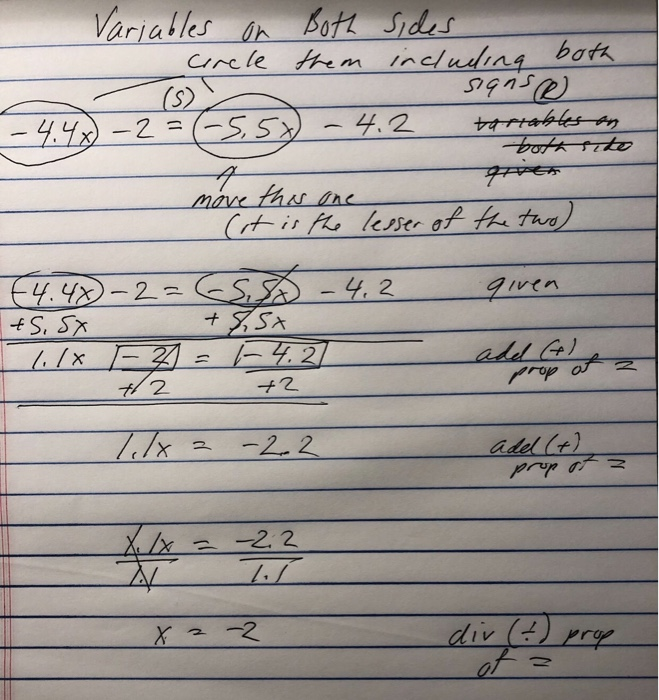 Variables on Both Sides
circle them including both
signs (R)
(S)
-4.4x - 2 = -5.5x - 4.2
variables on
both side
given
move this one
(it is the lesser of the two)
-4.4x - 2 = -5.5x - 4.2 given
+5.5x +5.5x
1.1x -2 = -4.2 add (+)
prop of =
+2 +2
1.1x = -2.2 add (+)
prop of =
1.1x = -2.2
1.1 1.1
x = -2 div (÷) prop
of =